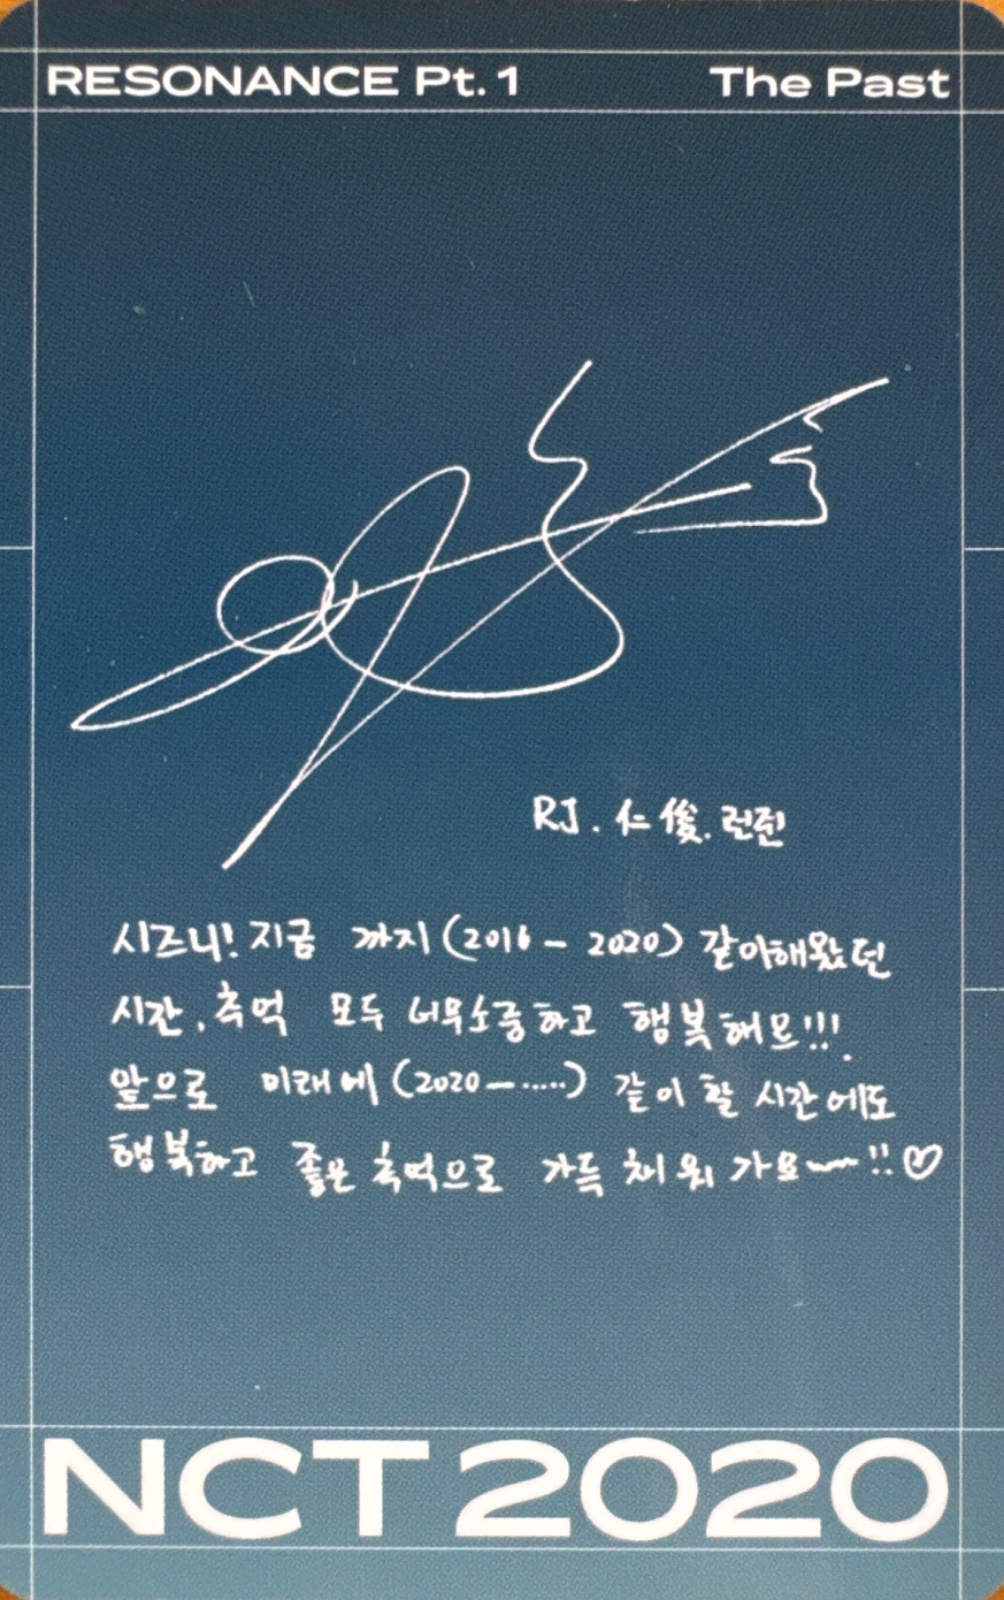 RESONANCE Pt. 1 The Past
RJ. 仁俊. 런쥔
시즈니! 지금 까지 (2016 - 2020) 같이해왔던
시간, 추억 모두 너무소중하고 행복해요!!!
앞으로 미래에 (2020 - .....) 같이 할 시간에도
행복하고 좋은 추억으로 가득 채워 가요~~!! ♡
NCT 2020